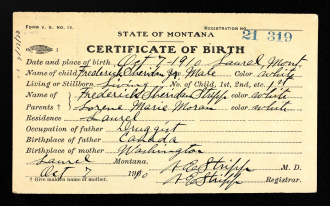 FORM V. S. NO. 12.
REGISTRATION NO.
STATE OF MONTANA
21 319
CERTIFICATE OF BIRTH
Date and place of birth. Oct 7 1910 Laurel, Mont.
Name of child Frederick Male Color white
Living or Stillborn Living No. of Child, 1st, 2nd, etc. 1st
Name of Parents † Frederick Stripp color white
Lorene Marie Moran color white
Residence Laurel
Occupation of father Druggist
Birthplace of father Canada
Birthplace of mother Washington
Laurel Montana.
H E Stripp M. D.
Oct 7 1910
H E Stripp Registrar.
† Give maiden name of mother.